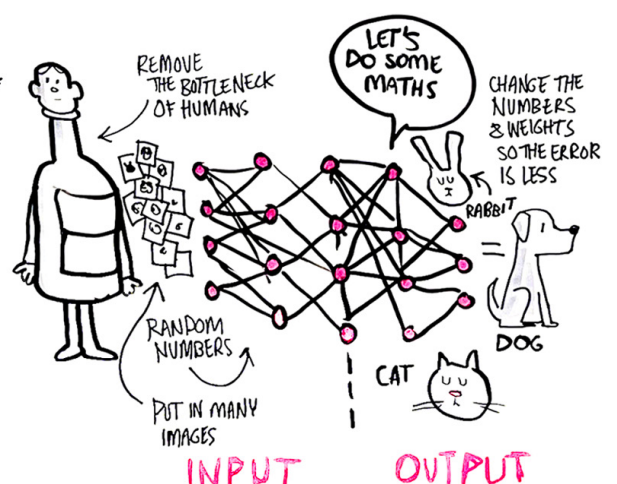 REMOVE
THE BOTTLENECK
OF HUMANS
LET'S
DO SOME
MATHS
CHANGE THE
NUMBERS
& WEIGHTS
SO THE ERROR
IS LESS
RABBIT
DOG
CAT
RANDOM
NUMBERS
PUT IN MANY
IMAGES
INPUT
OUTPUT